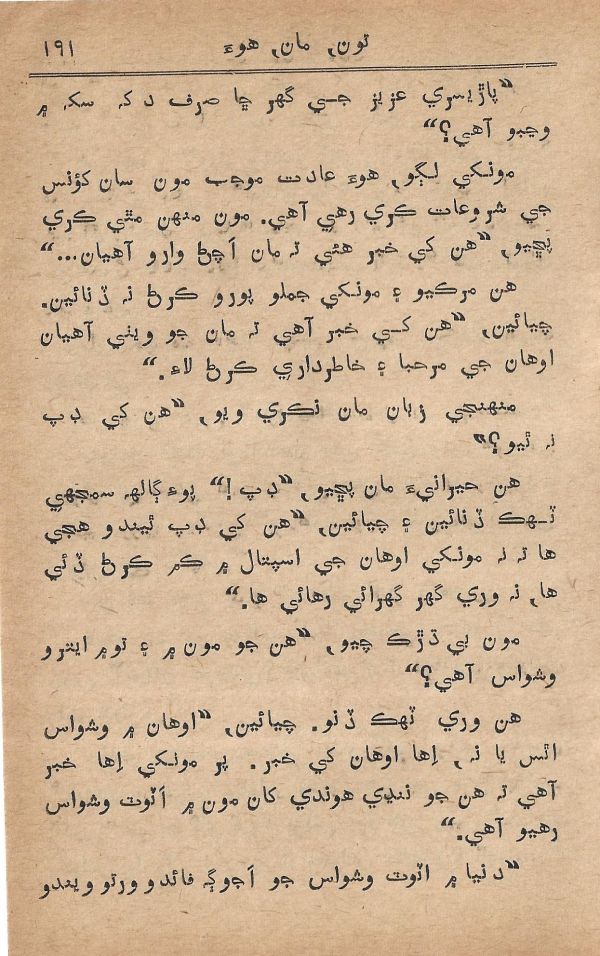 تون، مان، هوءَ ١٩١
”پاڙيسري عزيز جي گهر ڇا صرف دک سک ۾
وڃبو آهي؟“
مونکي لڳو، هوءَ عادت موجب مون سان کؤنس
جي شروعات ڪري رهي آهي. مون منهن مٿي ڪري
پڇيو، ”هن کي خبر هئي تہ مان اَچڻ وارو آهيان...“
هن مرڪيو ۽ مونکي جملو پورو ڪرڻ نہ ڏنائين.
چيائين، ”هن کي خبر آهي تہ مان جو ويٺي آهيان
اوهان جي مرحبا ۽ خاطرداري ڪرڻ لاءِ.“
منهنجي زبان مان نڪري ويو، ”هن کي ڊپ
نہ ٿيو؟“
هن حيرانيءَ مان پڇيو، ”ڊپ!“ پوءِ ڳالهہ سمجهي
ٽهڪ ڏنائين ۽ چيائين، ”هن کي ڊپ ٿيندو هجي
ها تہ نہ مونکي اوهان جي اسپتال ۾ ڪم ڪرڻ ڏئي
ها، نہ وري گهر گهرائي رهائي ها.“
مون بي ڌڙڪ چيو، ”هن جو مون ۾ ۽ تو ۾ ايترو
وشواس آهي؟“
هن وري ٽهڪ ڏنو. چيائين، ”اوهان ۾ وشواس
اٿس يا نہ، اِها اوهان کي خبر. پر مونکي اِها خبر
آهي تہ هن جو ننڍي هوندي کان مون ۾ اَٽوٽ وشواس
رهيو آهي.“
”دنيا ۾ اٽوٽ وشواس جو اَجوڳ فائدو ورتو ويندو